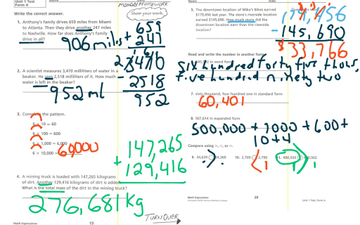 MONDAY HOMEWORK
Show your work.
Write the correct answer.
1. Anthony's family drove 659 miles from Miami to Atlanta. Then they drove another 247 miles to Nashville. How far did Anthony's family drive in all?
659
+ 247
906 miles
2. A scientist measures 3,470 milliliters of water in a beaker. She uses 2,518 milliliters of it. How much water is left in the beaker?
2518
952
952 ml
3. Complete the pattern.
× 10 = 60
× 100 = 600
× 1,000 = 6,000
6 × 10,000 = 60,000
4. A mining truck is loaded with 147,265 kilograms of dirt. Another 129,416 kilograms of dirt is added. What is the total mass of the dirt in the mining truck?
147,265
+ 129,416
276,681 kg
TURNOVER
5. The downtown location of Mike's Bikes earned $179,456 last year. The store's riverside location earned $145,690. How much more did the downtown location earn than the riverside location?
179,456
- 145,690
33,766
Read and write the number in another form.
six hundred forty five thous,
five hundred ninety two
60,401
500,000 + 7000 + 600 +
10 + 4
Compare using >, <, or =.
>
<
>
Math Expressions
Math Expressions